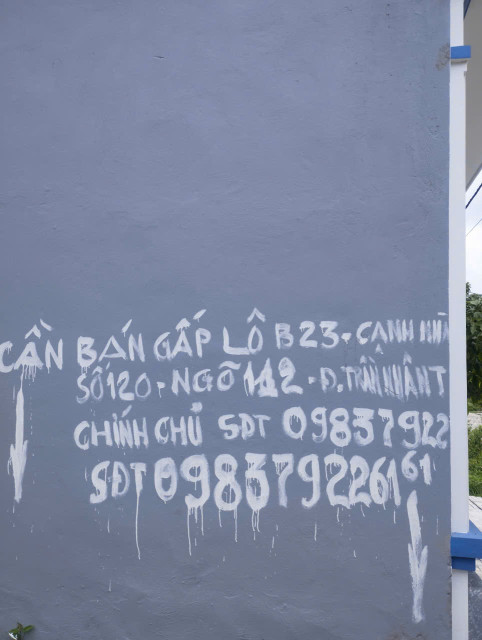 CẦN BÁN GẤP LÔ B23 - CẠNH NHÀ
SỐ 120 - NGÕ 112 - Đ. TRẦN NHÂN T
CHÍNH CHỦ SĐT 09837922
61
SĐT 0983792261